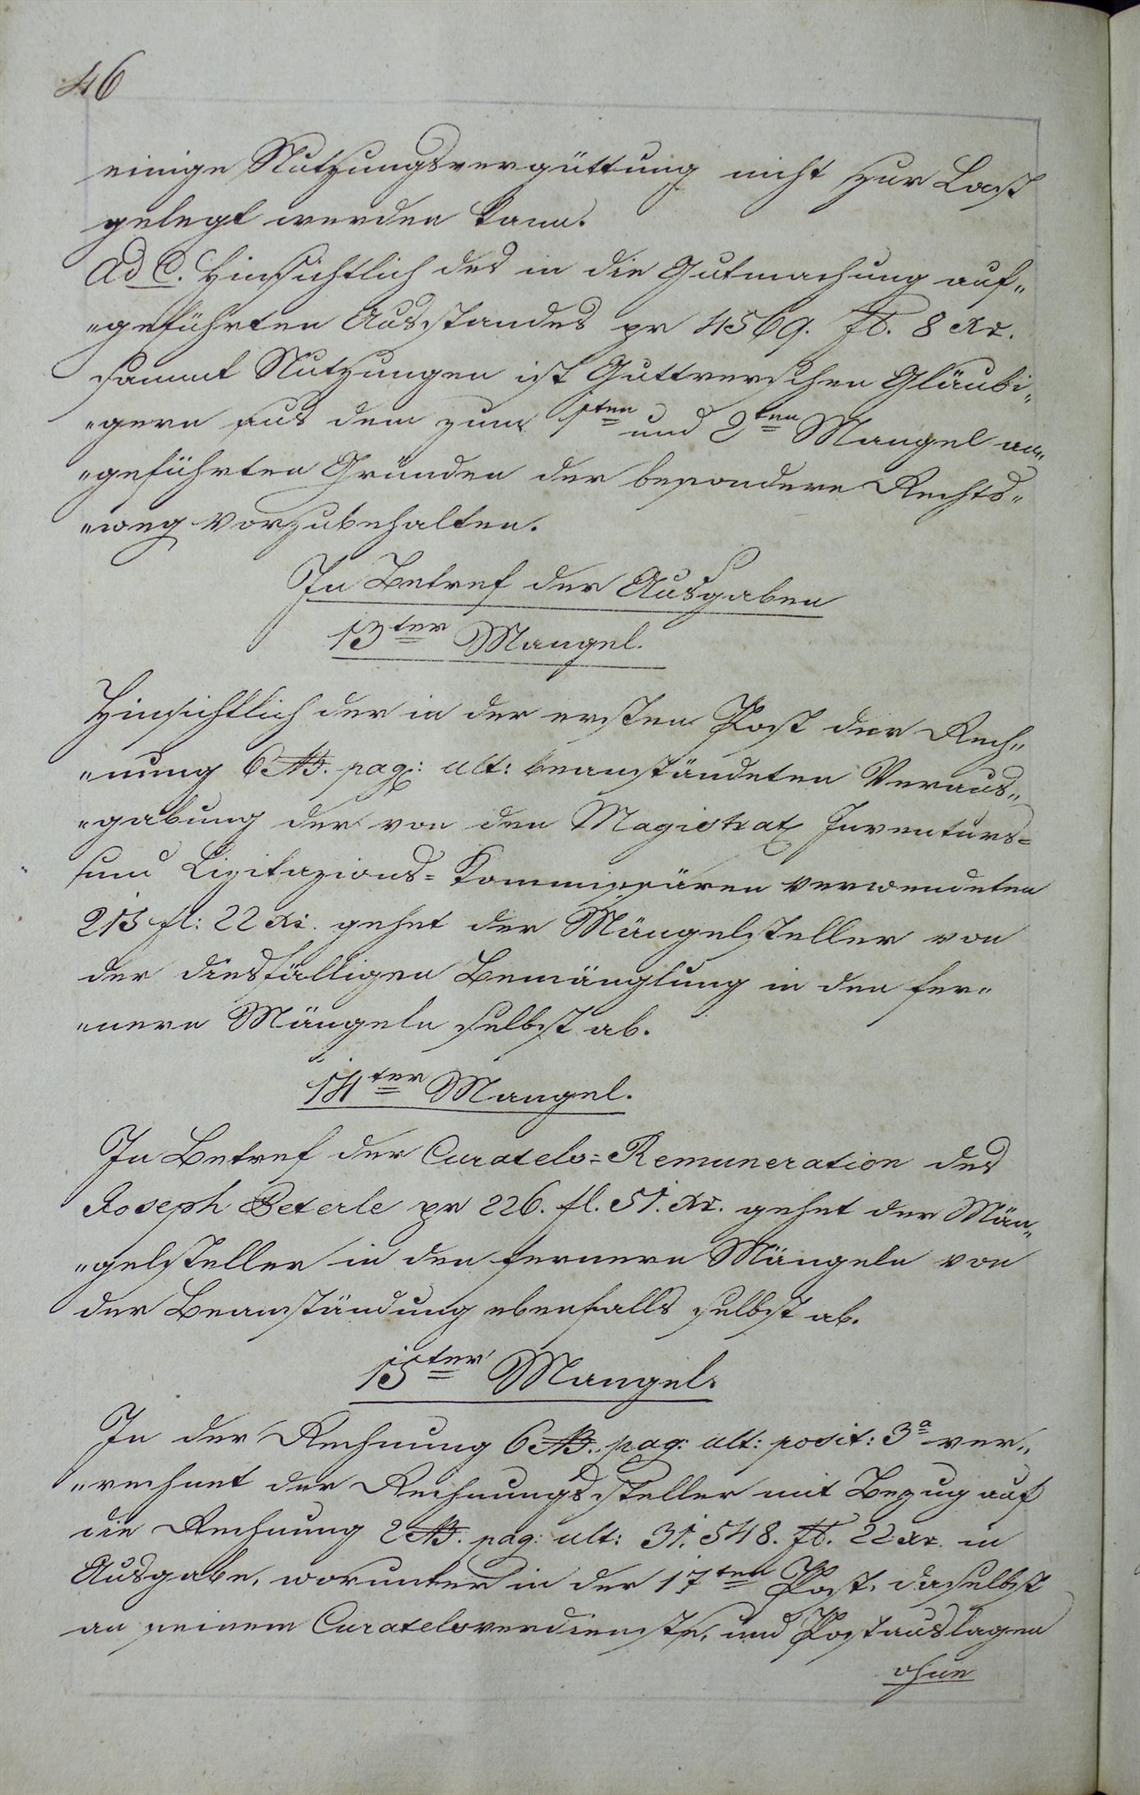 46
einige Nutzungsvergüttung nicht zur Last
gelegt werden kann.
Ad C. Hinsichtlich des in die Gutmachung auf„
„geführten Ausstandes pr 4569. fl. 8 xr.
sammt Nutzungen ist Guttverschen Gläubi„
„gern aus dem zum 1ten und 2ten Mangel an„
„geführten Gründen der besondere Rechts„
„weg vorzubehalten.
In Betref der Ausgaben
13ter Mangel.
Hinsichtlich der in der ersten Post der Rech„
„nung 6 pag: ult: beanständeten Veraus„
„gabung der von den Magistrat Inventurs=
und Lizitazions=Kommissären verwendeten
213 fl: 22 xr. gehet der Mängelsteller von
der diesfälligen Bemänglung in den fer„
„nern Mängeln selbst ab.
14ter Mangel.
In Betref der Curatels=Remuneration des
Joseph Peterle pr 226. fl. 51. xr. gehet der Män„
„gelsteller in den fernern Mängeln von
der Beanständung ebenfalls selbst ab.
15ter Mangel.
In der Rechnung 6 pag: ult: posit: 3a ver„
„rechnet der Rechnungssteller mit Bezug auf
die Rechnung 2 pag: ult: 31,548. fl. 22 xr. in
Ausgabe, worunter in der 17ten Post, daselbst
an seinem Curatelsverdienste, und Postauslagen
ohne